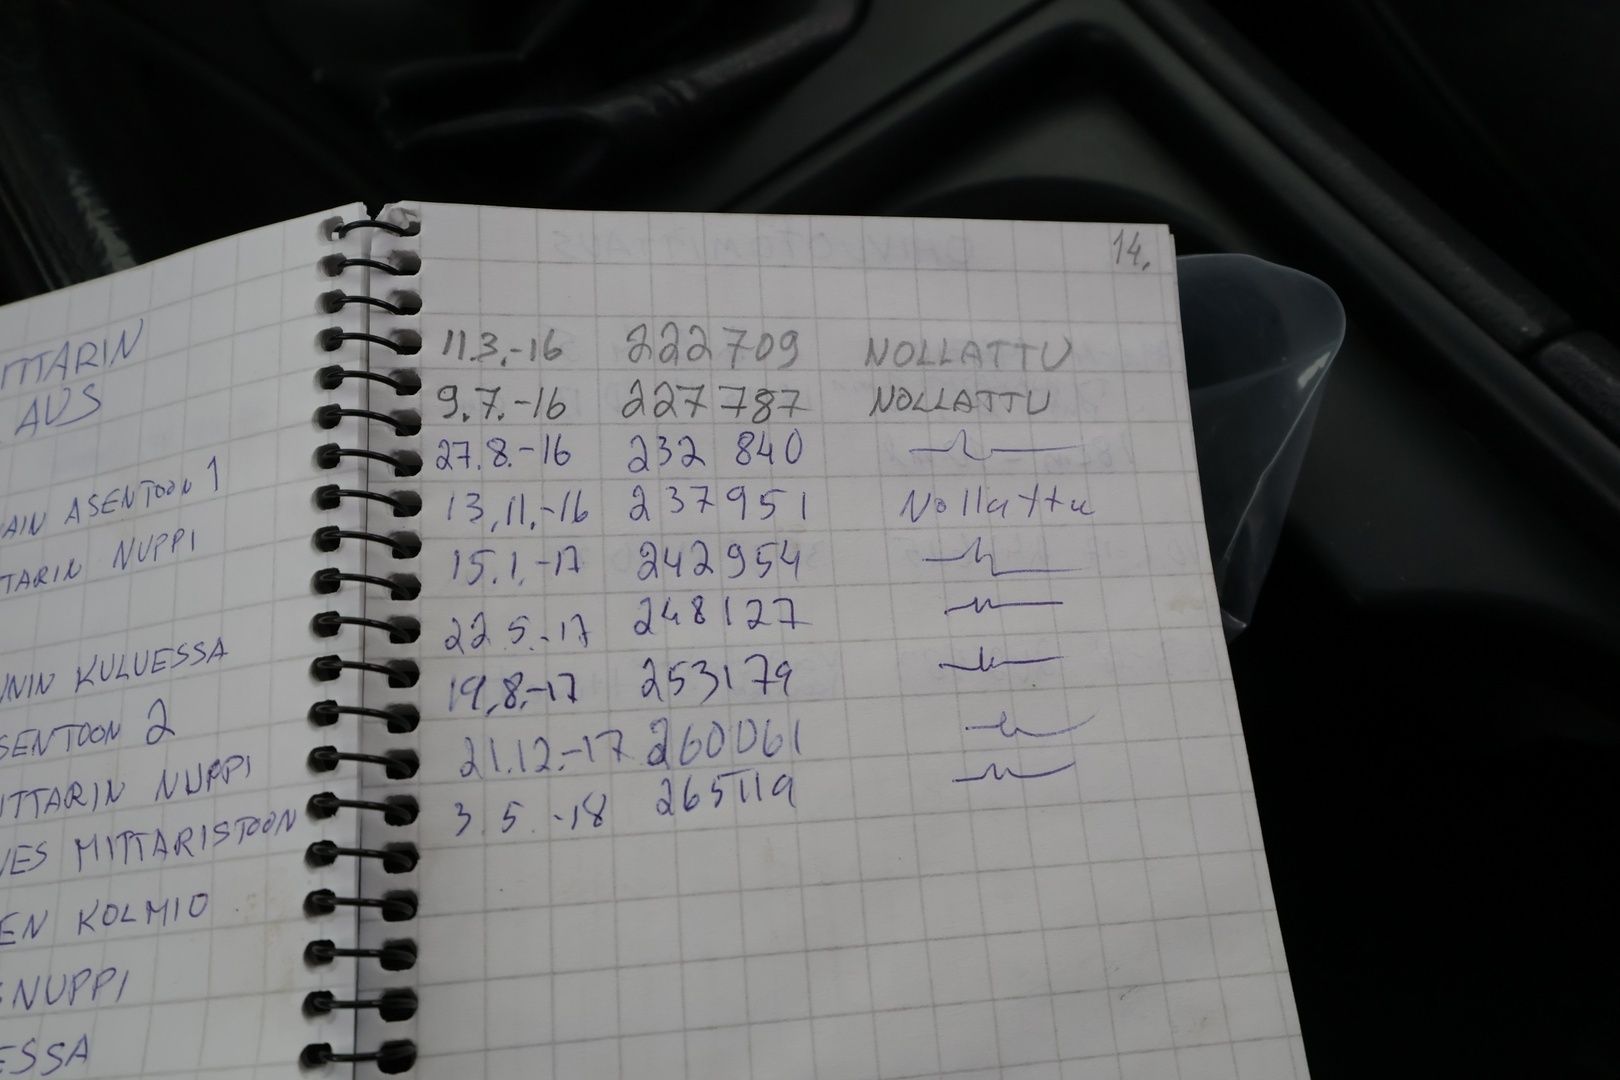 ITTARIN
AUS
AIN ASENTOON 1
TARIN NUPPI
UNIN KULUESSA
SENTOON 2
ITTARIN NUPPI
VES MITTARISTOON
EN KOLMIO
ENUPPI
ESSA
14.
11.3.-16 222709 NOLLATTU
9.7.-16 227787 NOLLATTU
27.8.-16 232 840 —"—
13.11.-16 237951 Nollattu
15.1.-17 242954 —"—
22.5.-17 248127 —"—
19.8.-17 253179 —"—
21.12.-17 260061 —"—
3.5.-18 265119 —"—